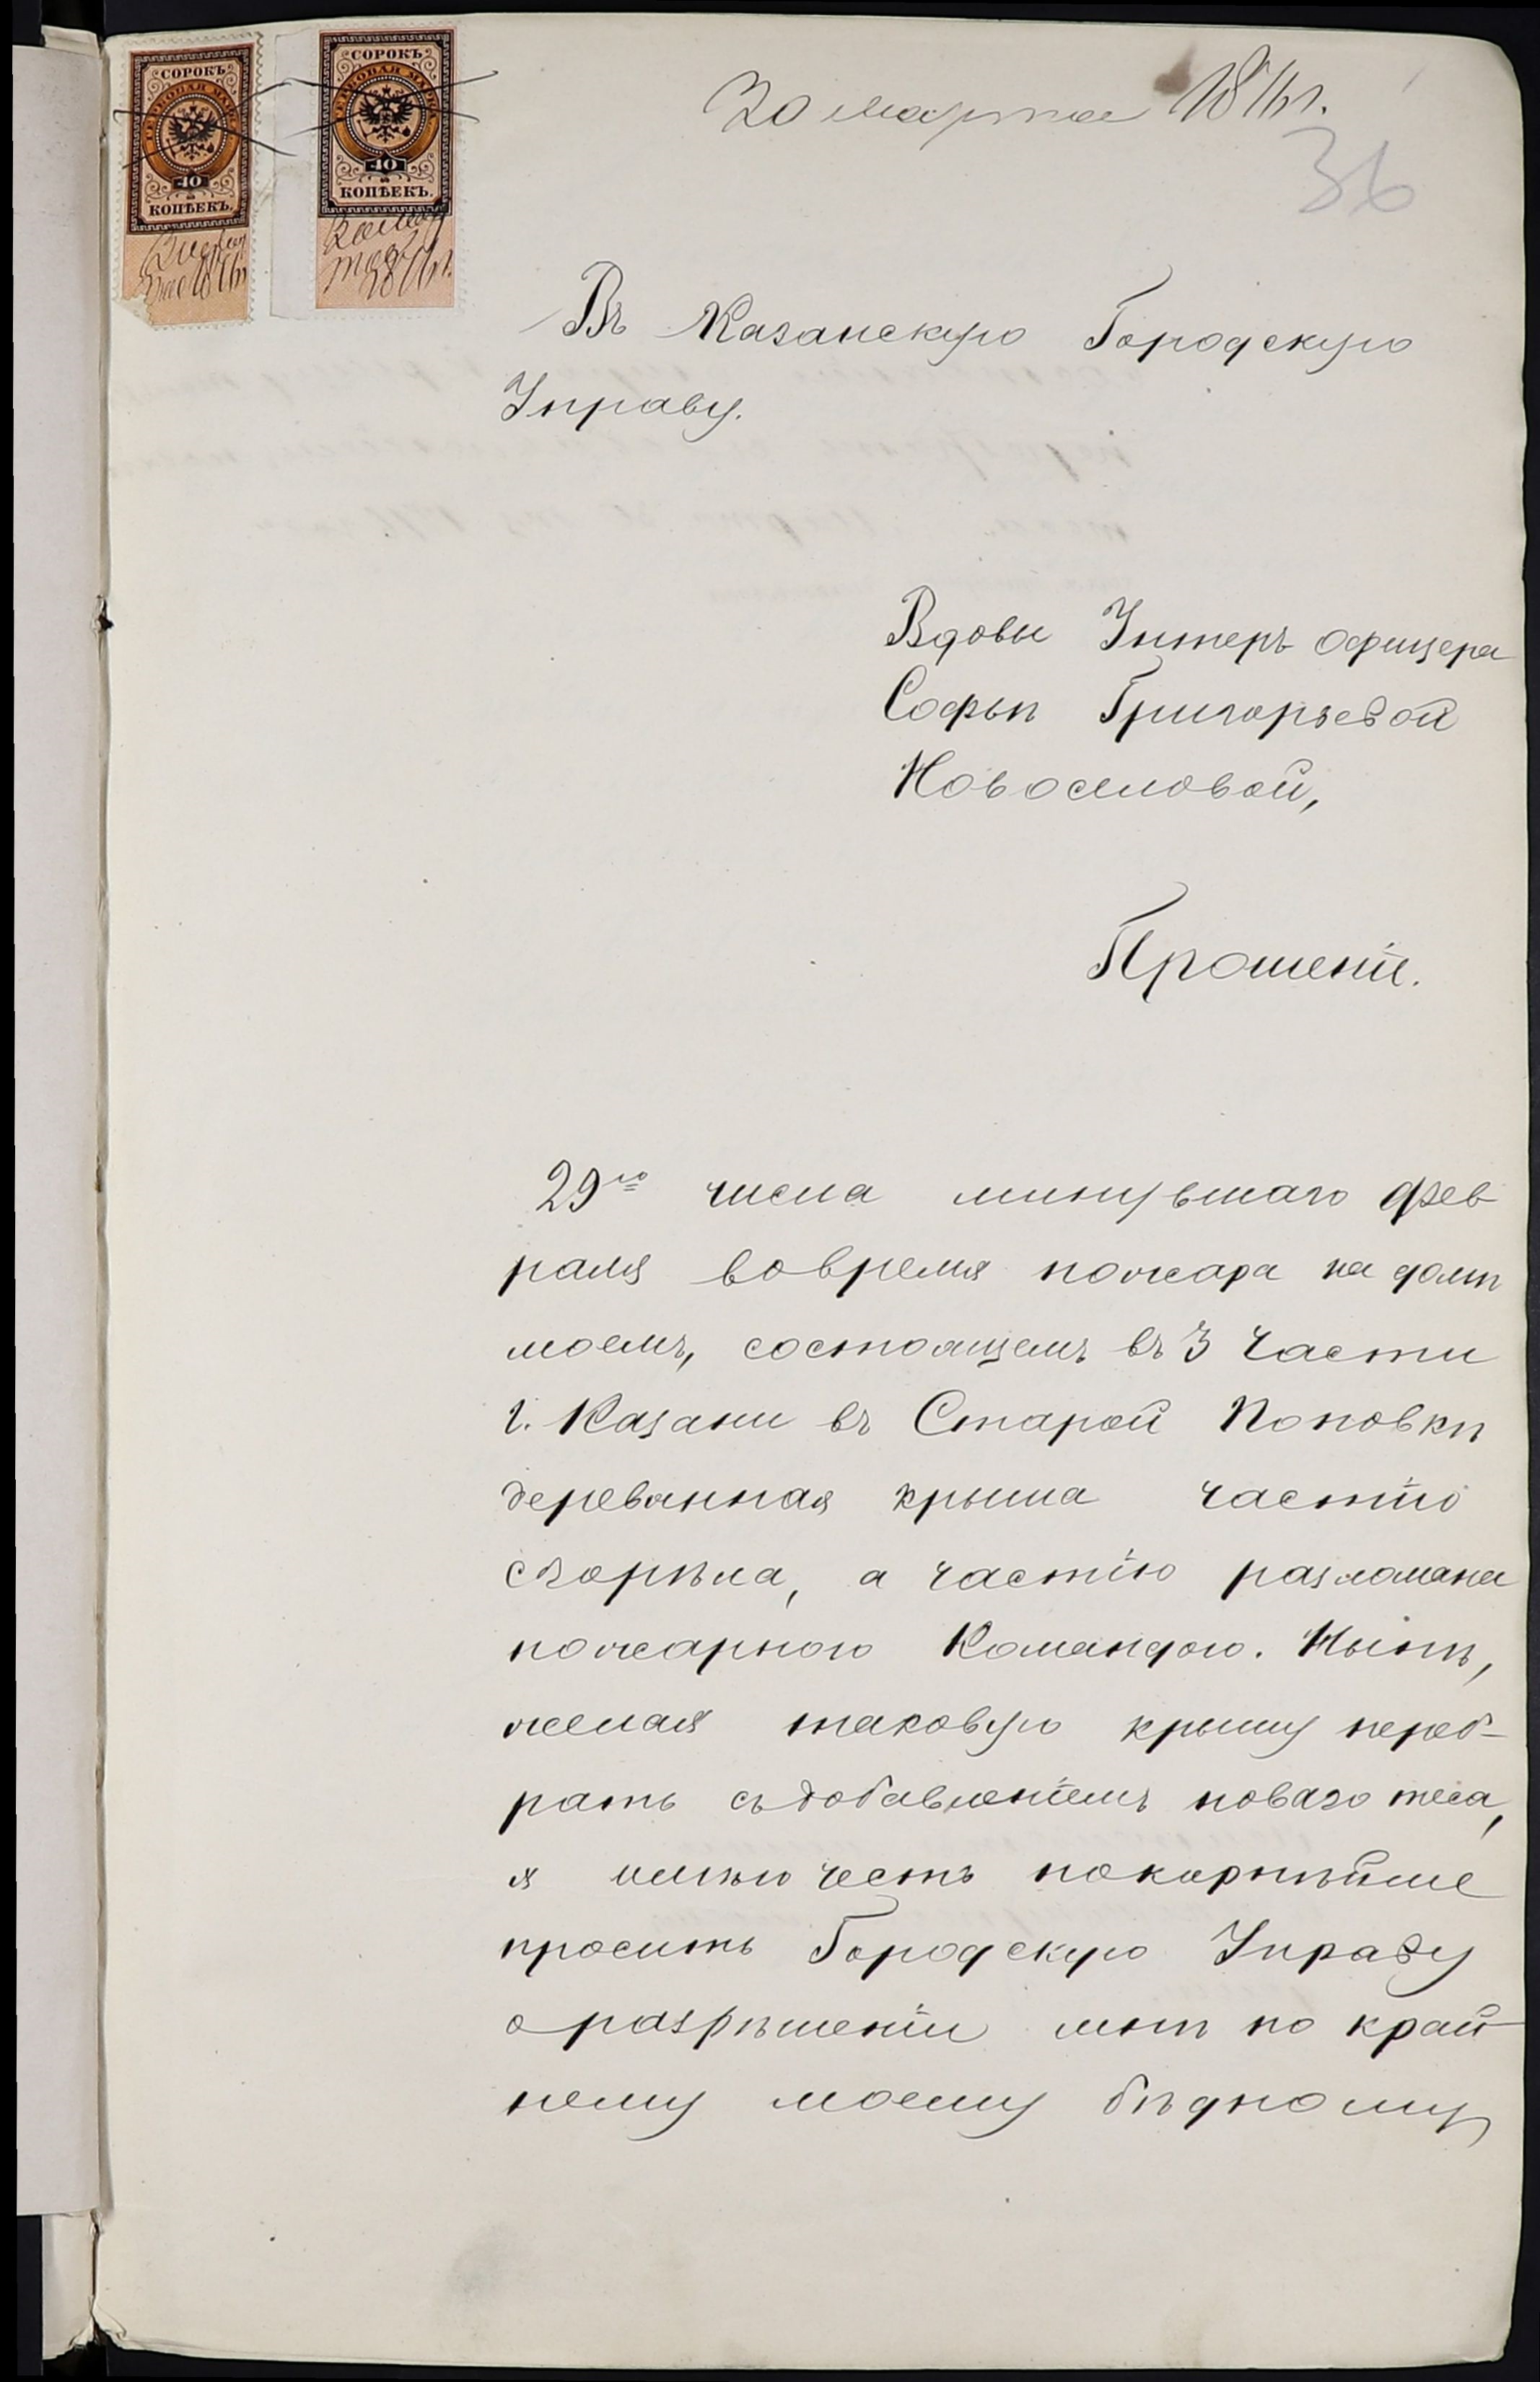 СОРОКЪ
ГЕРБОВАЯ МАРКА
40
КОПѢЕКЪ.
СОРОКЪ
ГЕРБОВАЯ МАРКА
40
КОПѢЕКЪ.
30 марта 1876 г.
36
Въ Казанскую Городскую
Управу.
Вдовы Унтеръ офицера
Софьи Григорьевой
Новоселовой,
Прошеніе.
29го числа минувшаго фев
раля вовремя пожара на домѣ
моемъ, состоящемъ въ 3 части
г. Казани въ Старой Поповкѣ
деревянная крыша частію
сгорѣла, а частію разломана
пожарною Командою. Нынѣ,
желая таковую крышу переб-
рать съ добавленіемъ новаго теса,
я имѣю честь покорнѣйше
просить Городскую Управу
о разрѣшеніи мнѣ по край
нему моему бѣдному